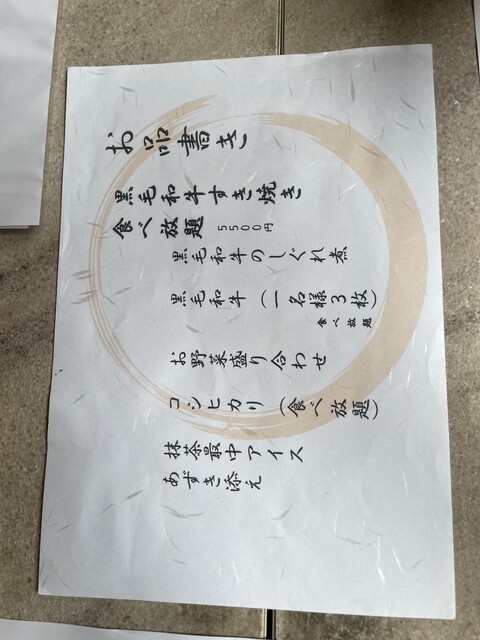 お品書き
黒毛和牛すき焼き
食べ放題 5500円
黒毛和牛のしぐれ煮
黒毛和牛（一名様3枚）
食べ放題
お野菜盛り合わせ
コシヒカリ（食べ放題）
抹茶最中アイス
あずき添え